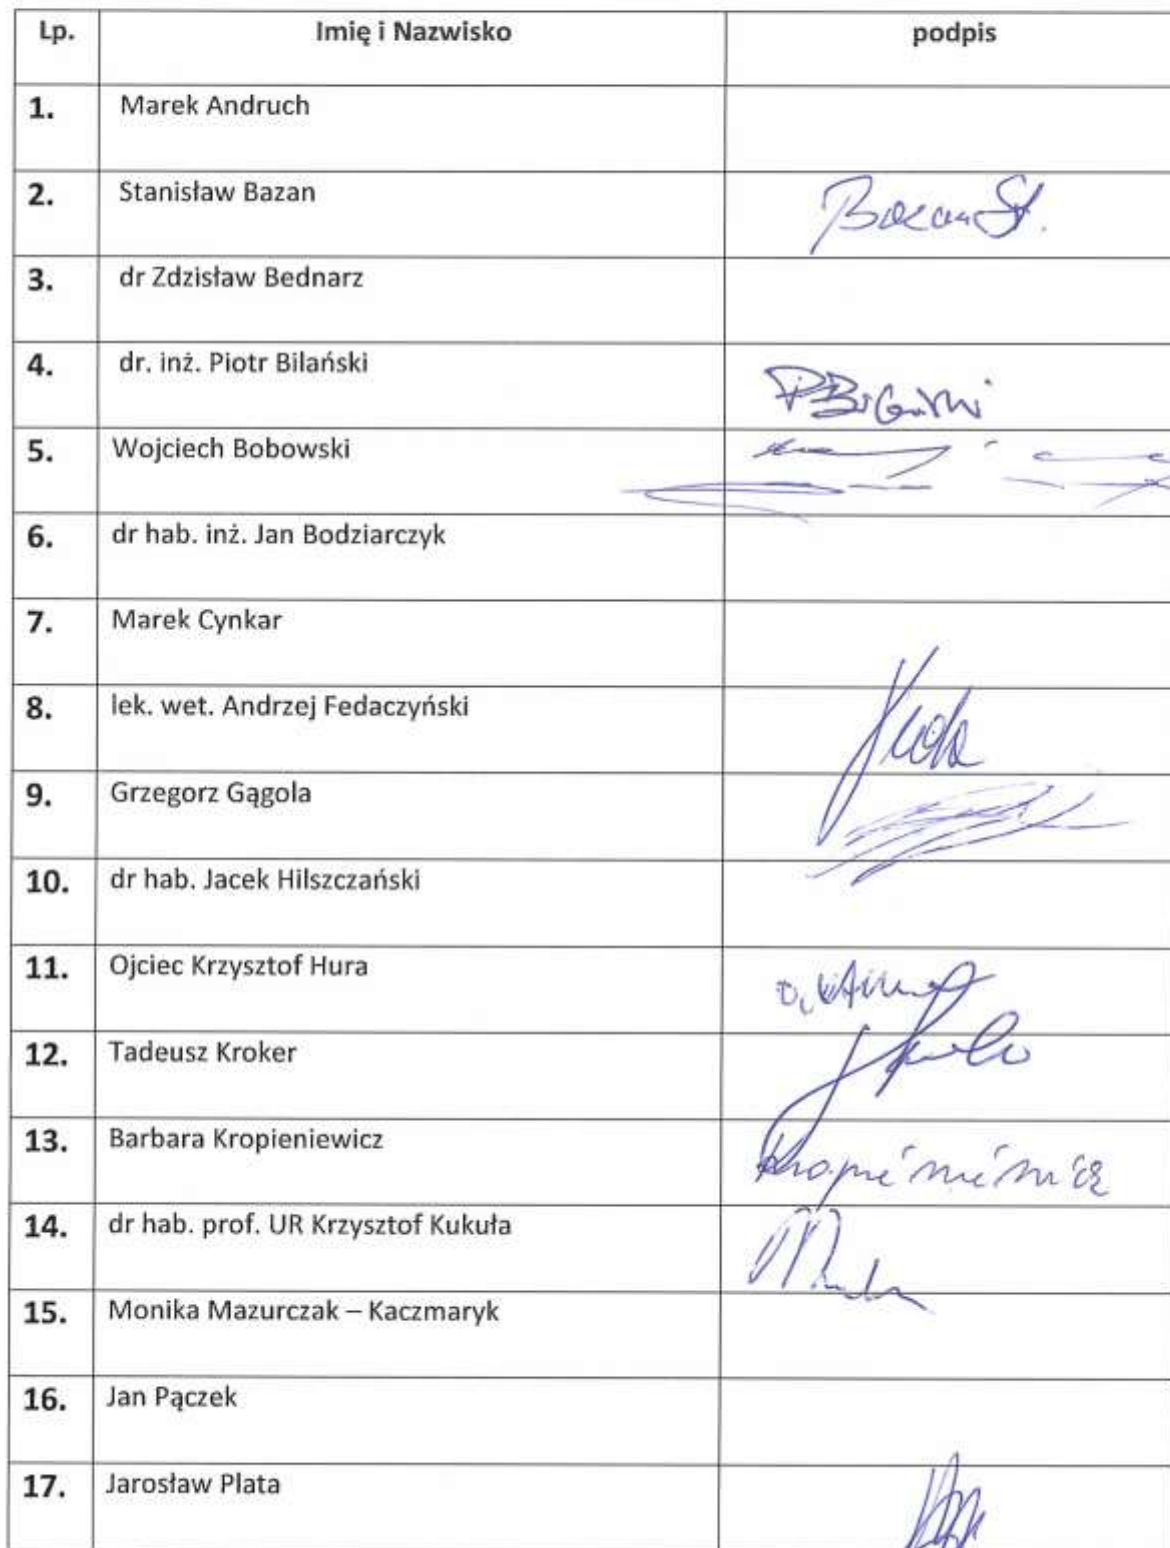 Lp. Imię i Nazwisko podpis
1. Marek Andruch
2. Stanisław Bazan Bazan St.
3. dr Zdzisław Bednarz
4. dr. inż. Piotr Bilański PBilański
5. Wojciech Bobowski
6. dr hab. inż. Jan Bodziarczyk
7. Marek Cynkar
8. lek. wet. Andrzej Fedaczyński
9. Grzegorz Gągola
10. dr hab. Jacek Hilszczański
11. Ojciec Krzysztof Hura
12. Tadeusz Kroker
13. Barbara Kropieniewicz Kropieniewicz
14. dr hab. prof. UR Krzysztof Kukuła
15. Monika Mazurczak – Kaczmaryk
16. Jan Pączek
17. Jarosław Plata